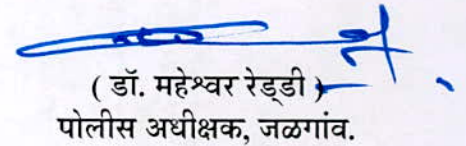 ( डॉ. महेश्वर रेड्डी )
पोलीस अधीक्षक, जळगांव.